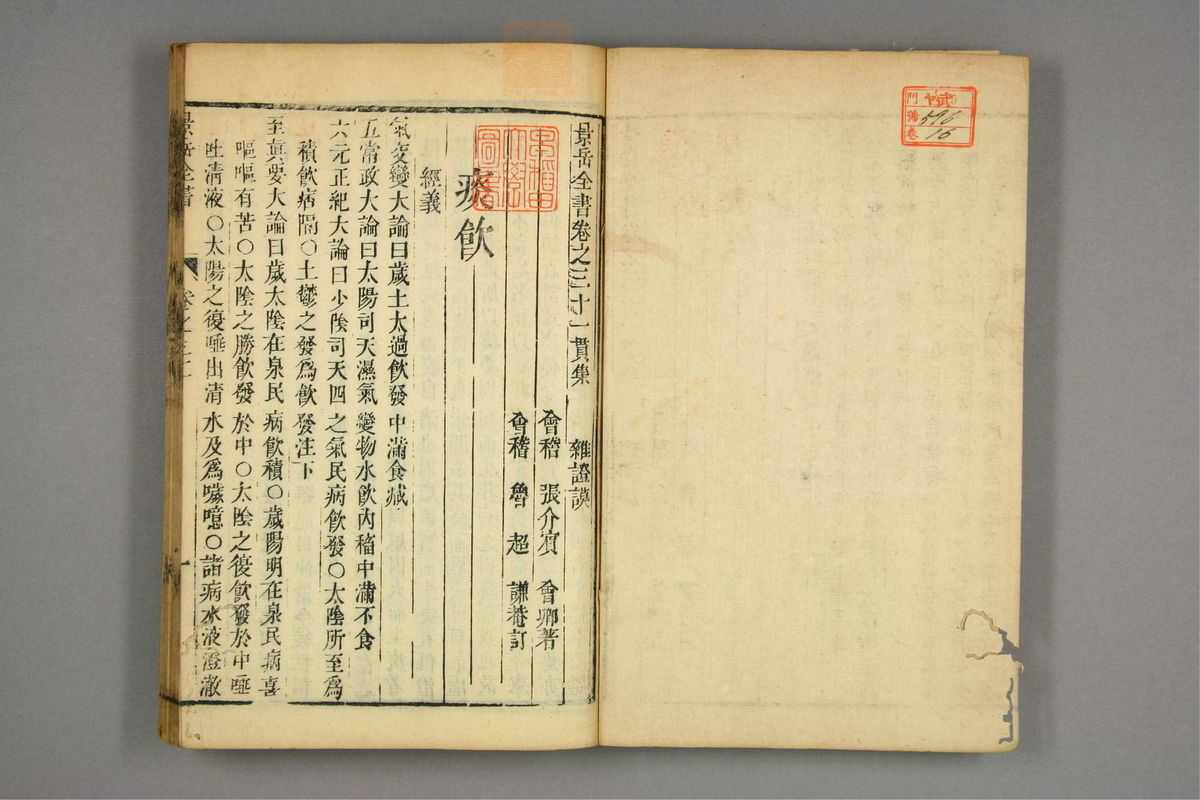 景岳全書卷之三十一貫集 雜證謨
會稽 張介賔 會卿著
會稽 魯超 謙菴訂
痰飲
經義
氣交變大論曰歲土太過飲發中滿食減
五常政大論曰太陽司天濕氣變物水飲內稸中滿不食
六元正紀大論曰少陰司天四之氣民病飲發○太陰所至爲
積飲痞隔○土鬱之發爲飲發注下
至真要大論曰歲太陰在泉民病飲積○歲陽明在泉民病喜
嘔嘔有苦○太陰之勝飲發於中○太陰之復飲發於中唾
吐清液○太陽之復唾出清水及爲噦噫○諸病水液澄澈
景岳全書
卷之三十一
一
早稻田大學圖書
門
號 596
卷 16